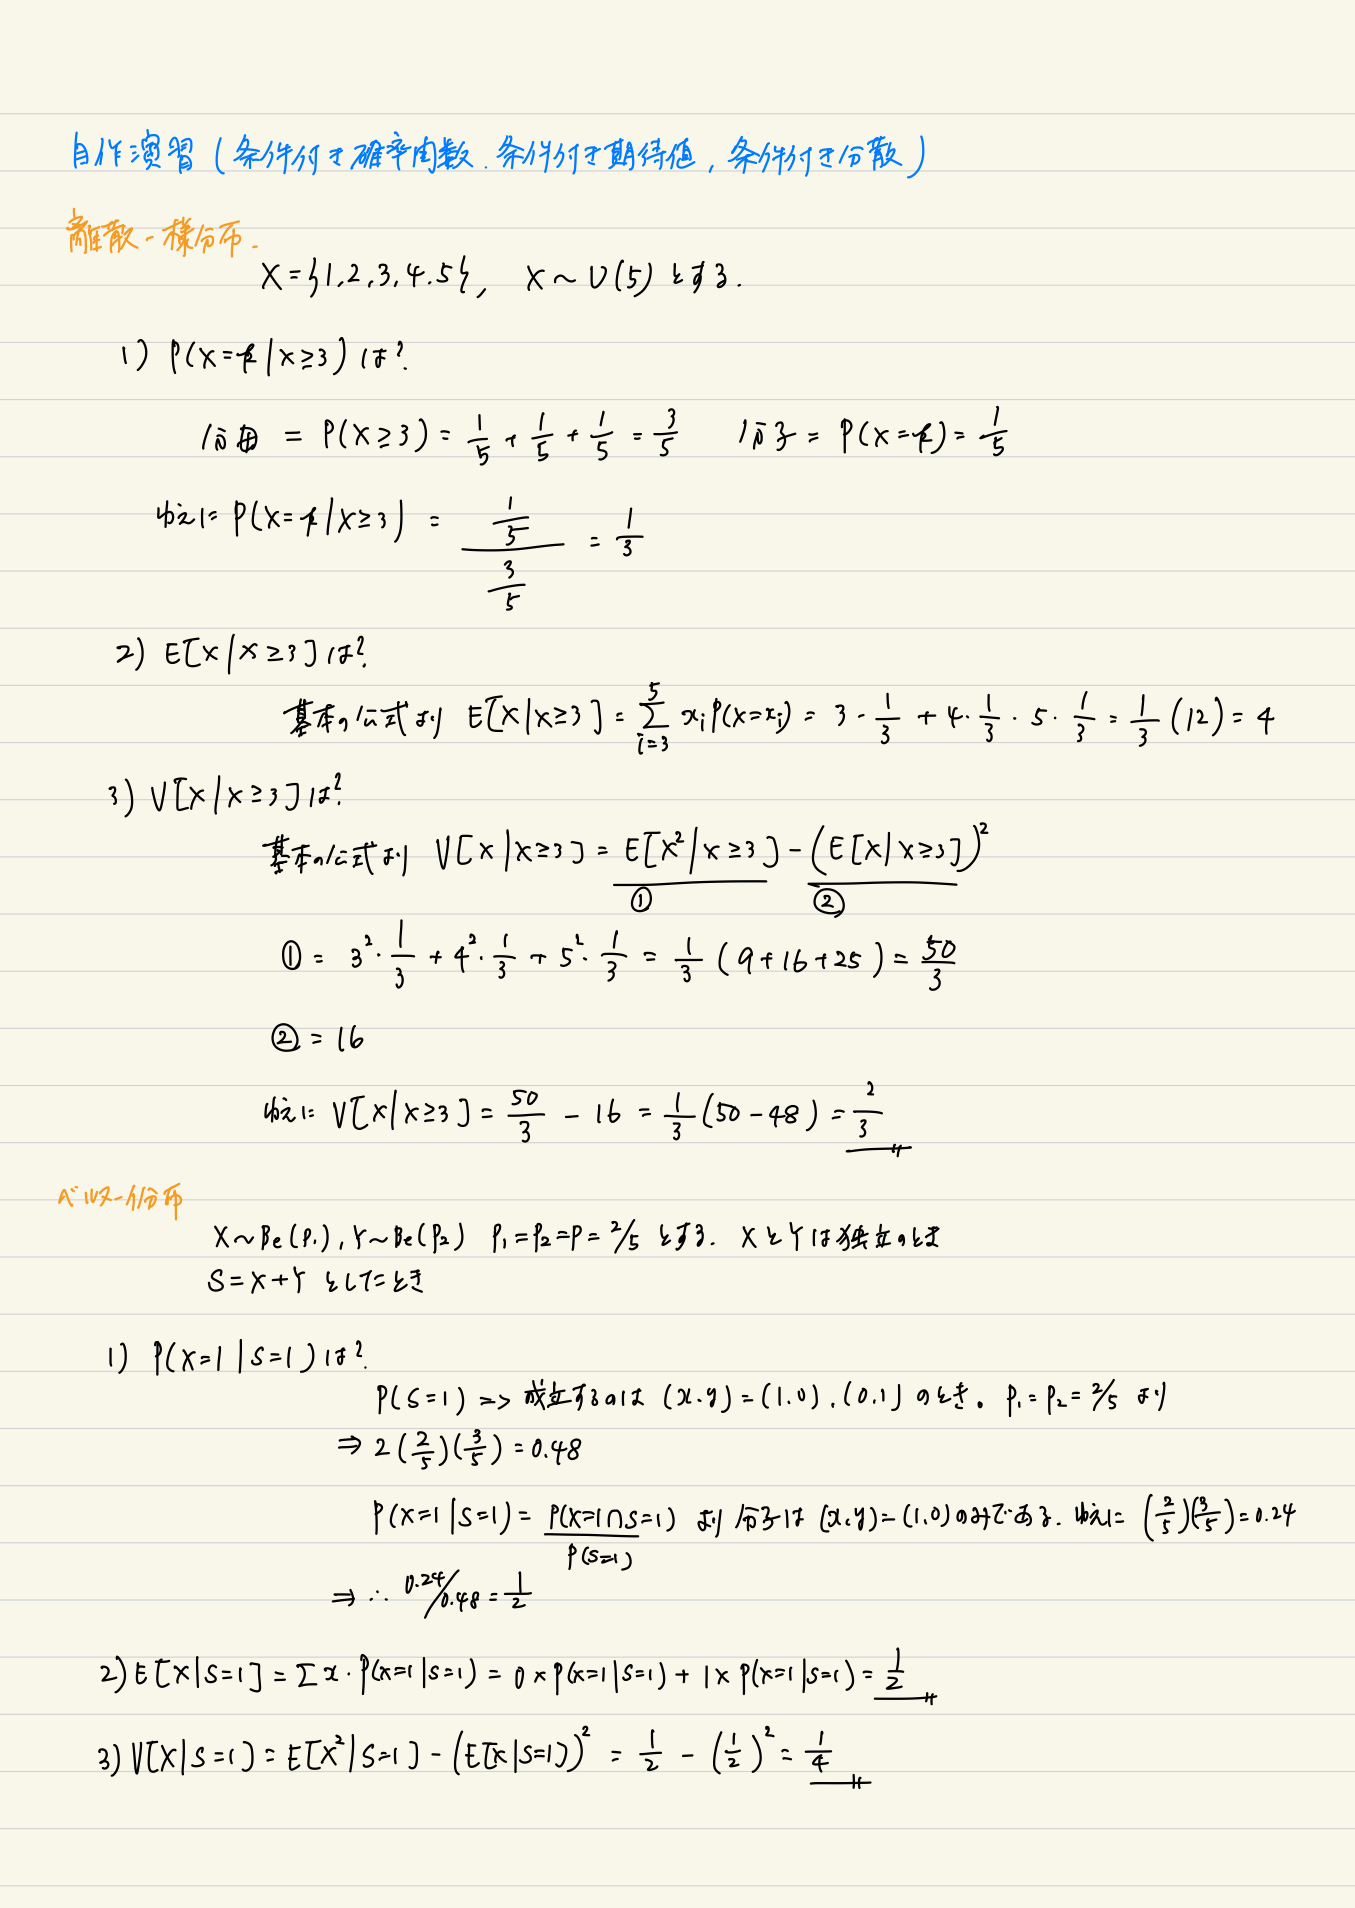 自作演習(条件付き確率関数、条件付き期待値,条件付き分散)
離散一様分布.
X={1,2,3,4.5}, X~U(5)とする.
1) P(X=k|X≥3)は?
分母 = P(X≥3) = 1/5 + 1/5 + 1/5 = 3/5 分子 = P(X=k) = 1/5
ゆえに P(X=k|X≥3) = (1/5)/(3/5) = 1/3
2) E[X|X≥3]は?
基本の公式より E[X|X≥3] = Σ_{i=3}^{5} x_i P(X=x_i) = 3・1/3 + 4・1/3・5・1/3 = 1/3(12) = 4
3) V[X|X≥3]は?
基本の公式より V[X|X≥3] = E[X²|X≥3] - (E[X|X≥3])²
① ②
① = 3²・1/3 + 4²・1/3 + 5²・1/3 = 1/3(9+16+25) = 50/3
② = 16
ゆえに V[X|X≥3] = 50/3 - 16 = 1/3(50-48) = 2/3
ベルヌーイ分布
X~Be(P₁), Y~Be(P₂) P₁=P₂=P=2/5 とする. XとYは独立のとき
S=X+Y としたとき
1) P(X=1|S=1)は?
P(S=1) => 成立するのは (x.y)=(1.0).(0.1) のとき。P₁=P₂=2/5 より
⇒ 2(2/5)(3/5) = 0.48
P(X=1|S=1) = P(X=1∩S=1)/P(S=1) より 分子は (x.y)=(1.0)のみである. ゆえに (2/5)(3/5)=0.24
⇒ ∴ 0.24/0.48 = 1/2
2) E[X|S=1] = Σx・P(X=1|S=1) = 0×P(X=1|S=1) + 1×P(X=1|S=1) = 1/2
3) V[X|S=1] = E[X²|S=1] - (E[X|S=1])² = 1/2 - (1/2)² = 1/4